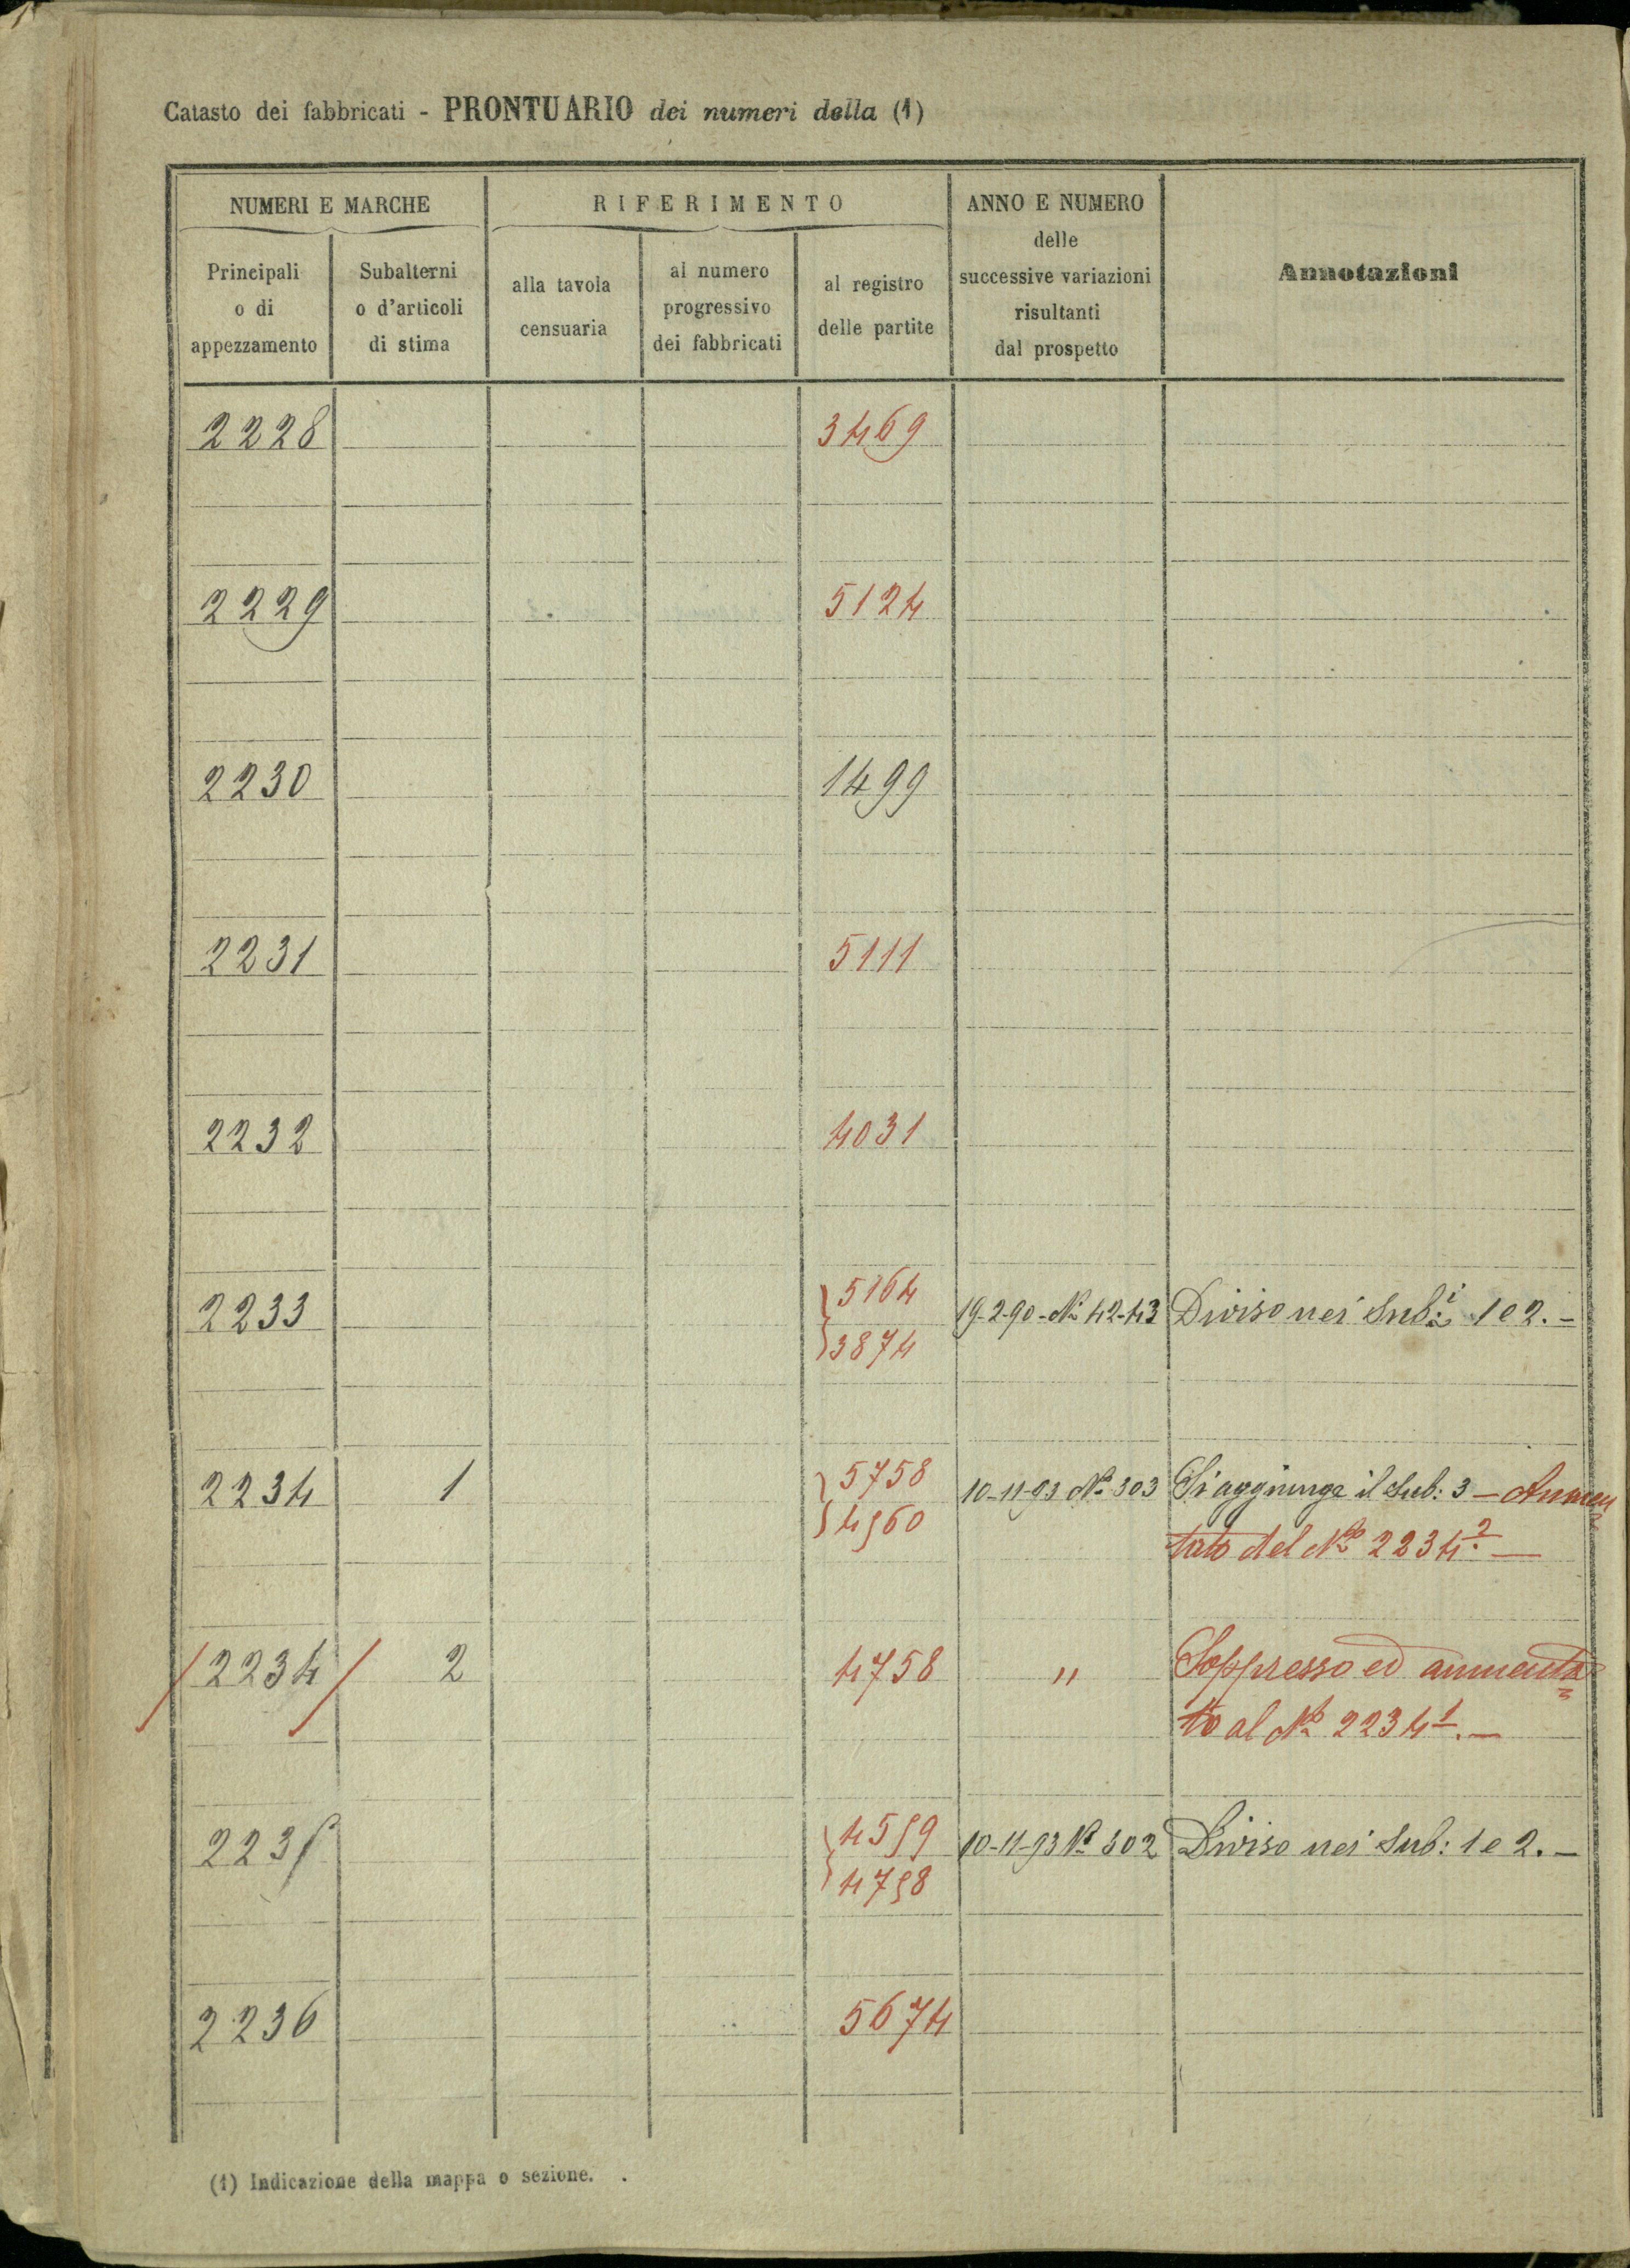 Catasto dei fabbricati - PRONTUARIO dei numeri della (1)
NUMERI E MARCHE
RIFERIMENTO
ANNO E NUMERO
delle
successive variazioni
risultanti
dal prospetto
Annotazioni
Principali
o di
appezzamento
Subalterni
o d'articoli
di stima
alla tavola
censuaria
al numero
progressivo
dei fabbricati
al registro
delle partite
2228 3469
2229 5124
2230 1499
2231 5111
2232 4031
2233 5164 19-2-90-No 42-43 Diviso nei Sub:i 1 e 2.-
3874
2234 1 5758 10-11-93 No 303 Si aggiunga il Sub: 3 - Aumen
4560
tato del No 2234 2.-
2234 2 4758 " Soppresso ed aumenta
to al No 2234 1.-
2235 4559 10-11-93 No 302 Diviso nei Sub: 1 e 2.-
4758
2236 5674
(1) Indicazione della mappa o sezione.